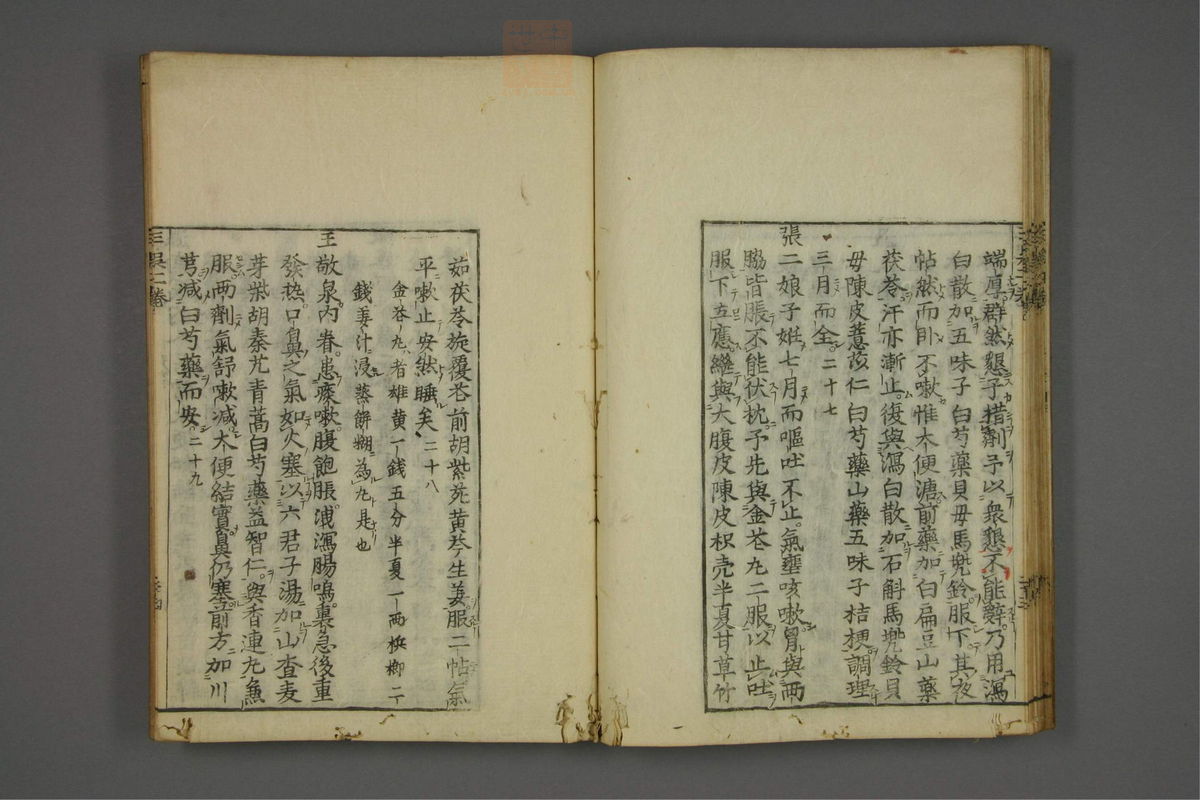 端厚群然懇予措劑予以衆懇不能辭乃用瀉
白散加五味子白芍藥貝母馬兜鈴服下其夜
帖然而卧不嗽惟大便溏前藥加白扁豆山藥
茯苓汗亦漸止復與瀉白散加石斛馬兜鈴貝
母陳皮薏苡仁白芍藥山藥五味子桔梗調理
三月而全二十七
張二娘子姙七月而嘔吐不止氣壅咳嗽胃與兩
脇皆脹不能伏枕予先與金花丸二服以止吐
服下立應繼與大腹皮陳皮枳壳半夏甘草竹
茹茯苓旋覆花前胡紫苑黄芩生姜服二帖氣
平嗽止安然睡矣二十八
金花丸者雄黄一錢五分半夏一兩梹榔二
錢姜汁浸蒸餅糊為丸是也
王敬泉内眷患痰嗽腹飽脹洩瀉腸鳴裏急後重
發熱口鼻之氣如火塞以六君子湯加山查麦
芽柴胡秦艽青蒿白芍藥益智仁與香連丸兼
服兩劑氣舒嗽减大便結實鼻仍塞前方加川
芎减白芍藥而安二十九